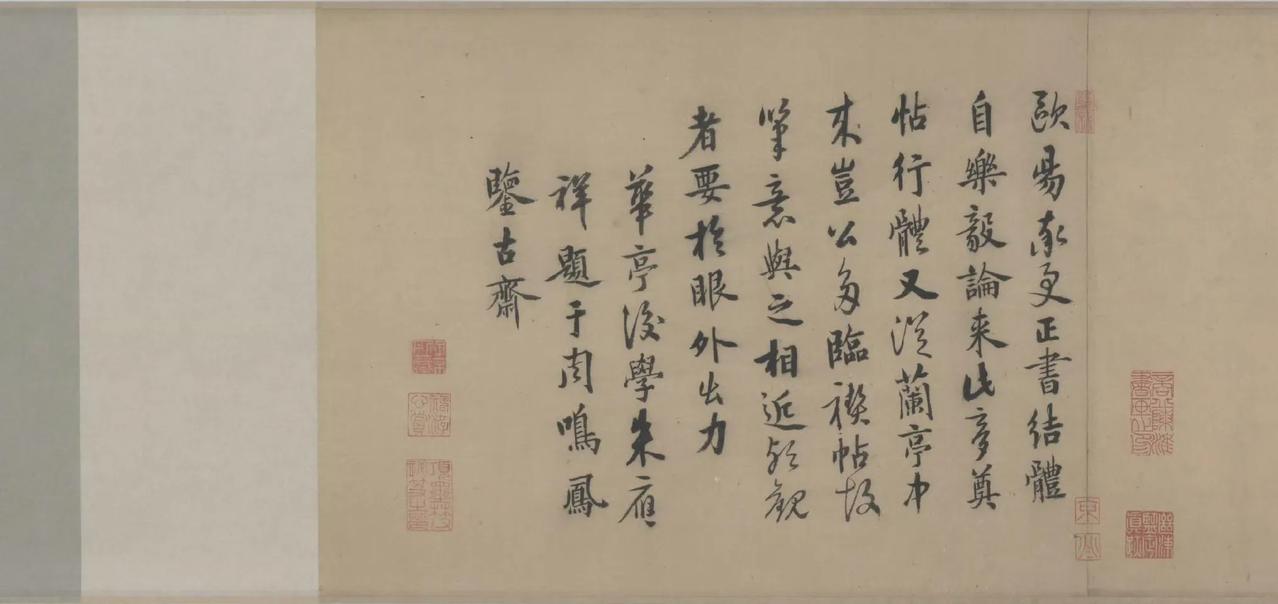 歐陽率更正書結體
自樂毅論来此夢奠
帖行體又從蘭亭中
来豈公多臨禊帖故
筆意與之相近觀
者要於眼外出力
華亭後學朱應
祥題于周鳴鳳
鑒古齋